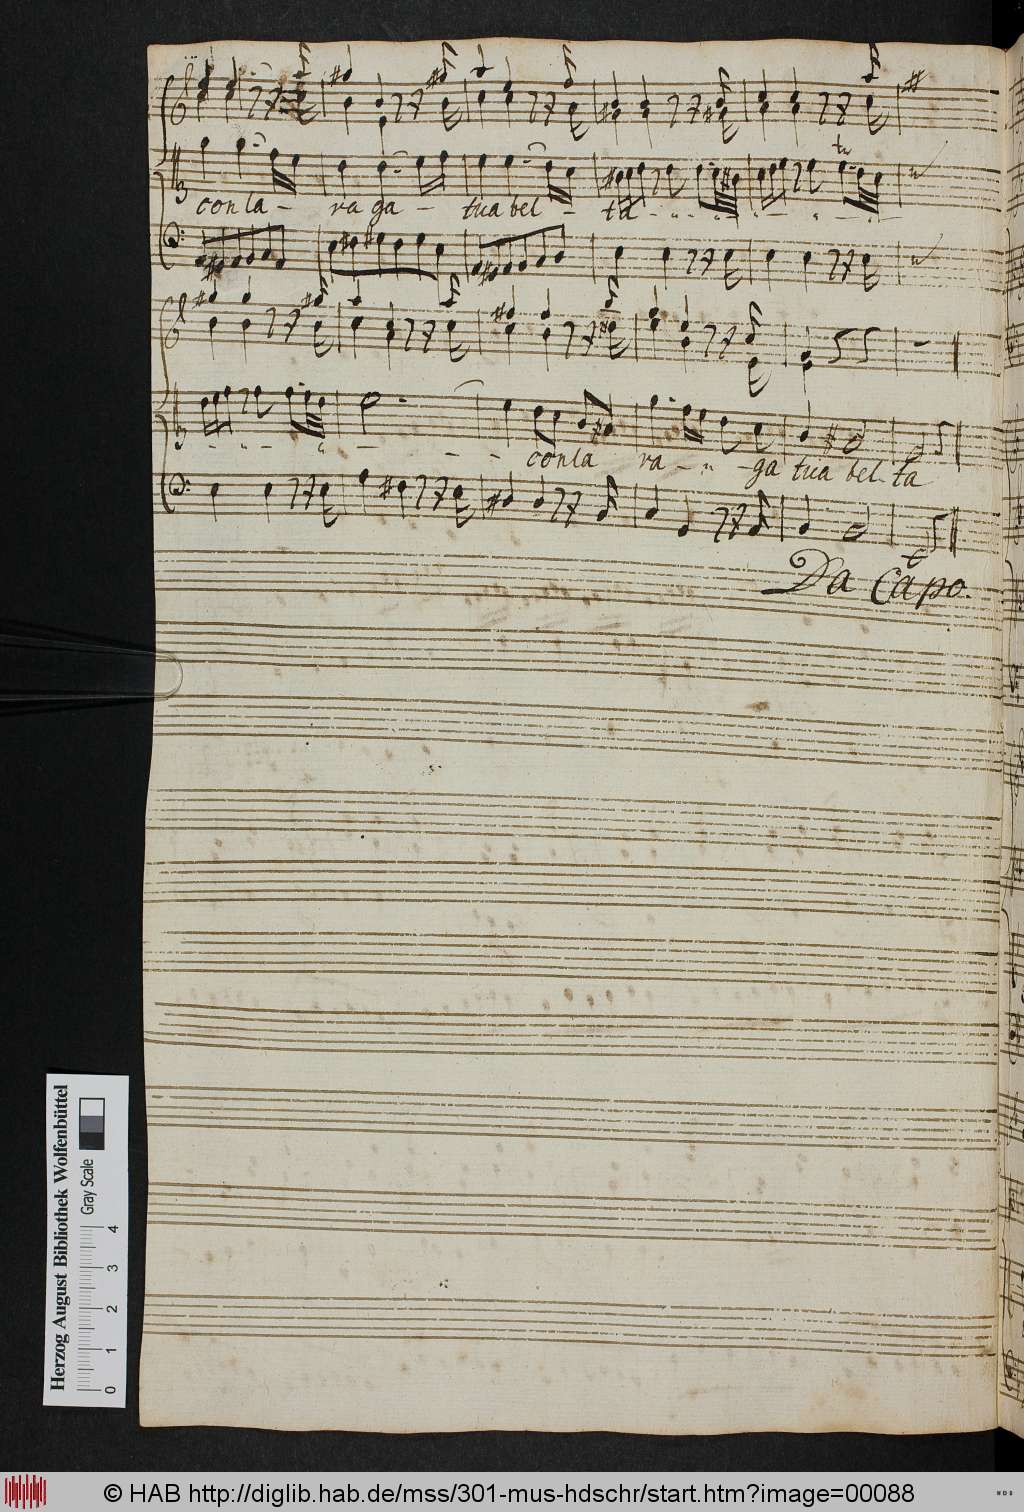 con la - ra ga - tua bel - ta - " - " - " - " - " -
tr
" - - " - - - - con la ra - " - ga tua bel - ta
Da Capo.
Herzog August Bibliothek Wolfenbüttel
Gray Scale
0 1 2 3 4
© HAB http://diglib.hab.de/mss/301-mus-hdschr/start.htm?image=00088